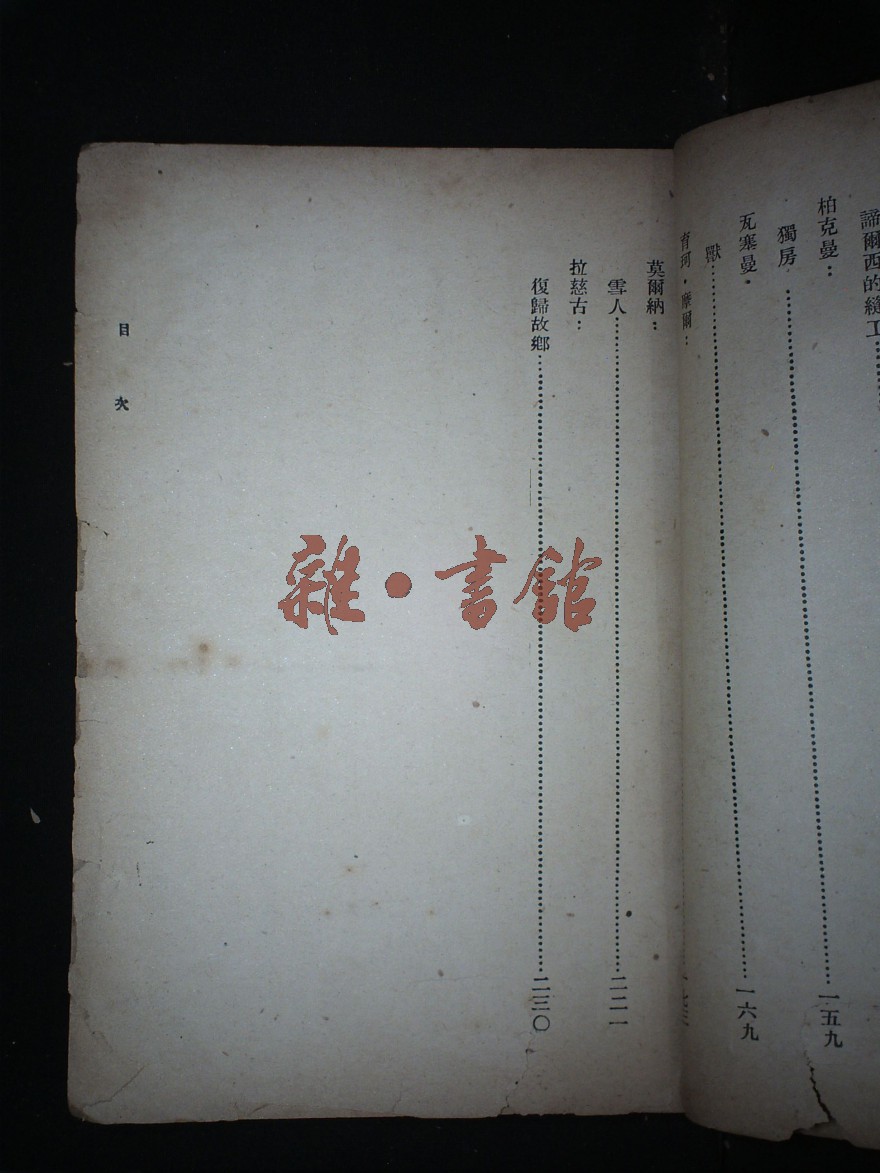 諦爾西的縫工
柏克曼：
獨房 一五九
瓦塞曼
獸 一六九
育珂·摩爾：
莫爾納：
雪人 二二一
拉慈古：
復歸故鄉 二三〇
目次
雜·書館